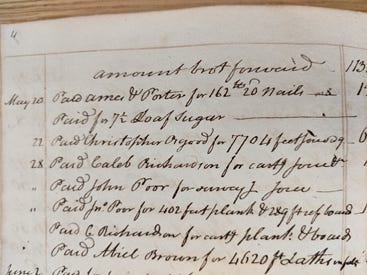 4
amount brot forward 113
May 20 Paid ames & Porter for 162 lb 20 Nails
Paid for 7 lb Loaf Sugar
22 Paid Christopher Osgood for 7704 feet
28 Paid Caleb Richardson for cartg
" Paid John Poor for survey
" Paid Jno Poor for 402 feet plank & 289 ft ref board
Paid C Richardson for cartg plank & boards
Paid Abiel Brown for 4620 ft Laths
June